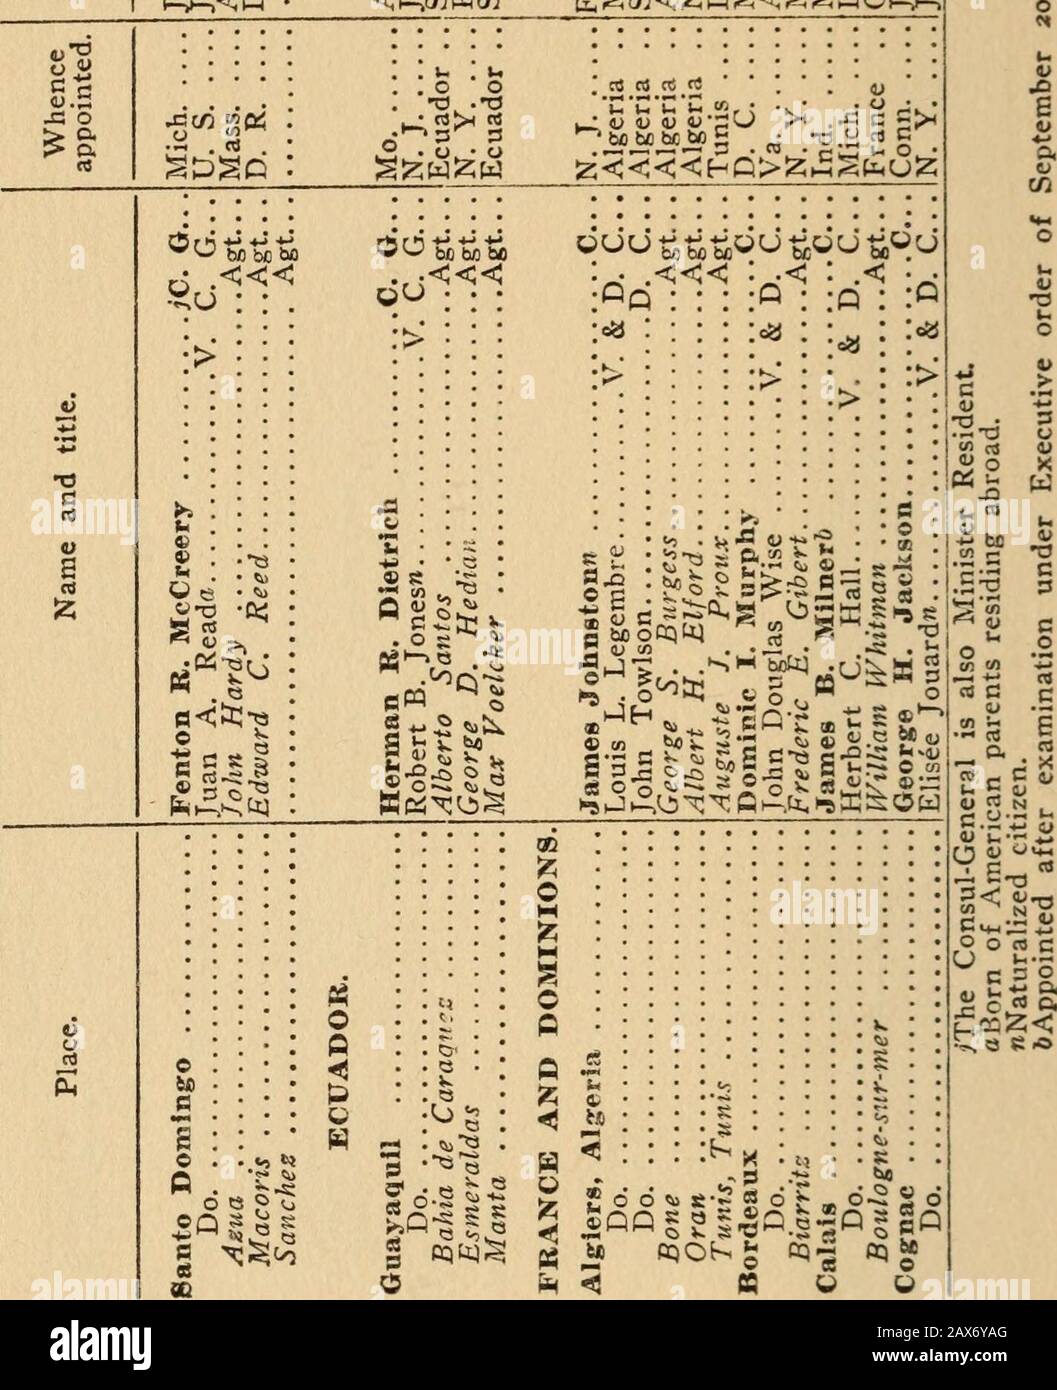 Place. Name and title. Whence appointed.
Santo Domingo ........ Fenton R. McCreery ........jC. G... Mich. ....
Do. ........ Juan A. Reada........V. C. G... U. S. ....
Azua ........ John Hardy ........Agt... Mass. ....
Macoris ........ Edward C. Reed........Agt... D. R. ....
Sanchez ........ Agt... ........
ECUADOR.
Guayaquil ........ Herman R. Dietrich ........C. G... Mo. ....
Do. ........ Robert B. Jonesn........V. C. G... N. J. ....
Bahia de Caraquez ........ Alberto Santos ........Agt... Ecuador ..
Esmeraldas ........ George D. Hedian........Agt... N. Y. ....
Manta ........ Max Voelcker ........Agt... Ecuador ..
FRANCE AND DOMINIONS.
Algiers, Algeria ........ James Johnstonn ........C... N. J. ....
Do. ........ Louis L. Legembre........V. & D. C... Algeria ..
Do. ........ John Towlson........D. C... Algeria ..
Bone ........ George S. Burgess ........Agt... Algeria ..
Oran ........ Albert H. Elford........Agt... Algeria ..
Tunis, Tunis ........ Auguste J. Proux........Agt... Tunis ....
Bordeaux ........ Dominic I. Murphy ........C... D. C. ....
Do. ........ John Douglas Wise ........V. & D. C... Va. ....
Biarritz ........ Frederic E. Gibert........Agt... N. Y. ....
Calais ........ James B. Milnerb ........C... Ind. ....
Do. ........ Herbert C. Hall........V. & D. C... Mich. ....
Boulogne-sur-mer ........ William Whitman ........Agt... France ..
Cognac ........ George H. Jackson........C... Conn. ....
Do. ........ Elisée Jouardn........V. & D. C... N. Y. ....
jThe Consul-General is also Minister Resident.
aBorn of American parents residing abroad.
nNaturalized citizen.
bAppointed after examination under Executive order of September 20
alamy
Image ID: 2AX6YAG
www.alamy.com